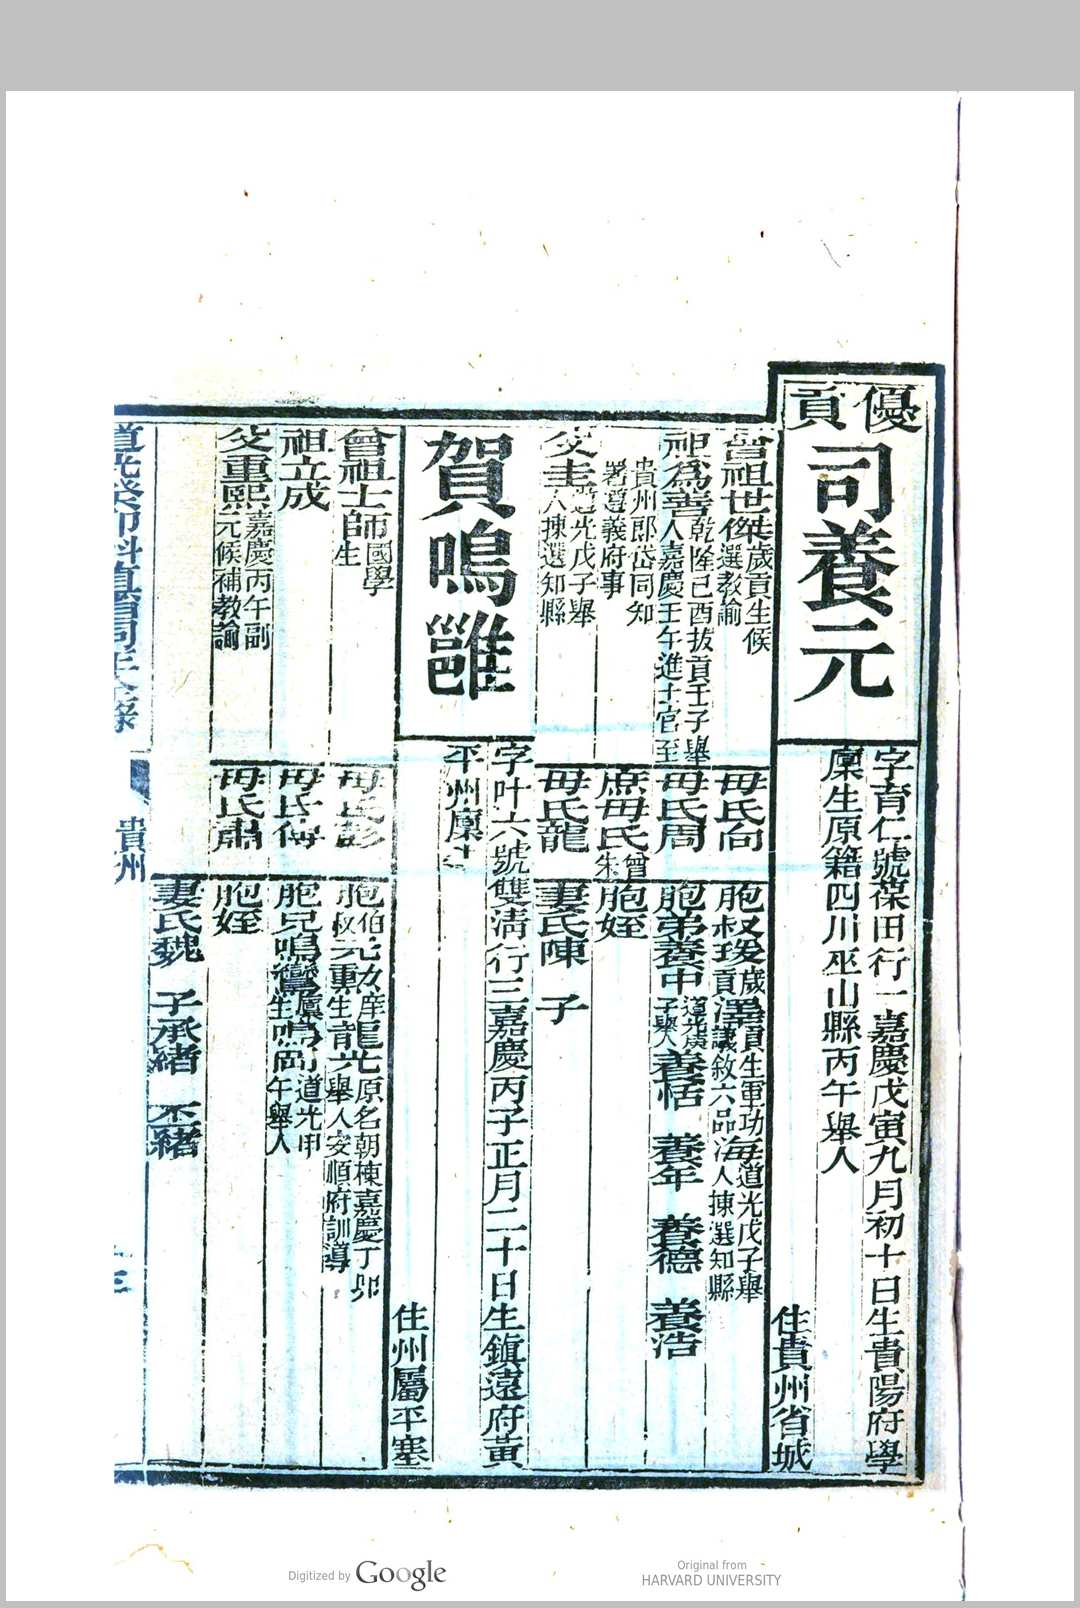 優貢
司養元
字育仁號葆田行一嘉慶戊寅九月初十日生貴陽府學
廩生原籍四川巫山縣丙午舉人
住貴州省城
曾祖世傑歲貢生候選教諭
祖爲善乾隆己酉拔貢壬子舉人嘉慶壬午進士官至
貴州郎岱同知署遵義府事
父圭道光戊子舉人揀選知縣
母氏向
母氏周
庶母氏曾朱
母氏龍
胞叔瑗歲貢澤貢生軍功議敘六品海道光戊子舉人揀選知縣
胞弟養中養恬 養年 養德 養浩
胞姪
妻氏陳 子
賀鳴雝
字叶六號雙清行三嘉慶丙子正月二十日生鎮遠府黃
平州廩生
住州屬平寨
曾祖士師國學生
祖立成
父重熙嘉慶丙午副元候補教諭
母氏彭
母氏傅
母氏肅
胞伯叔元勳庠生龍光原名朝棟嘉慶丁卯舉人安順府訓導
胞兄鳴鸞廩生鳴岡道光甲午舉人
胞姪
妻氏魏 子承緒 丕緒
道光癸卯科直省同年全錄
貴州
Digitized by Google
Original from
HARVARD UNIVERSITY